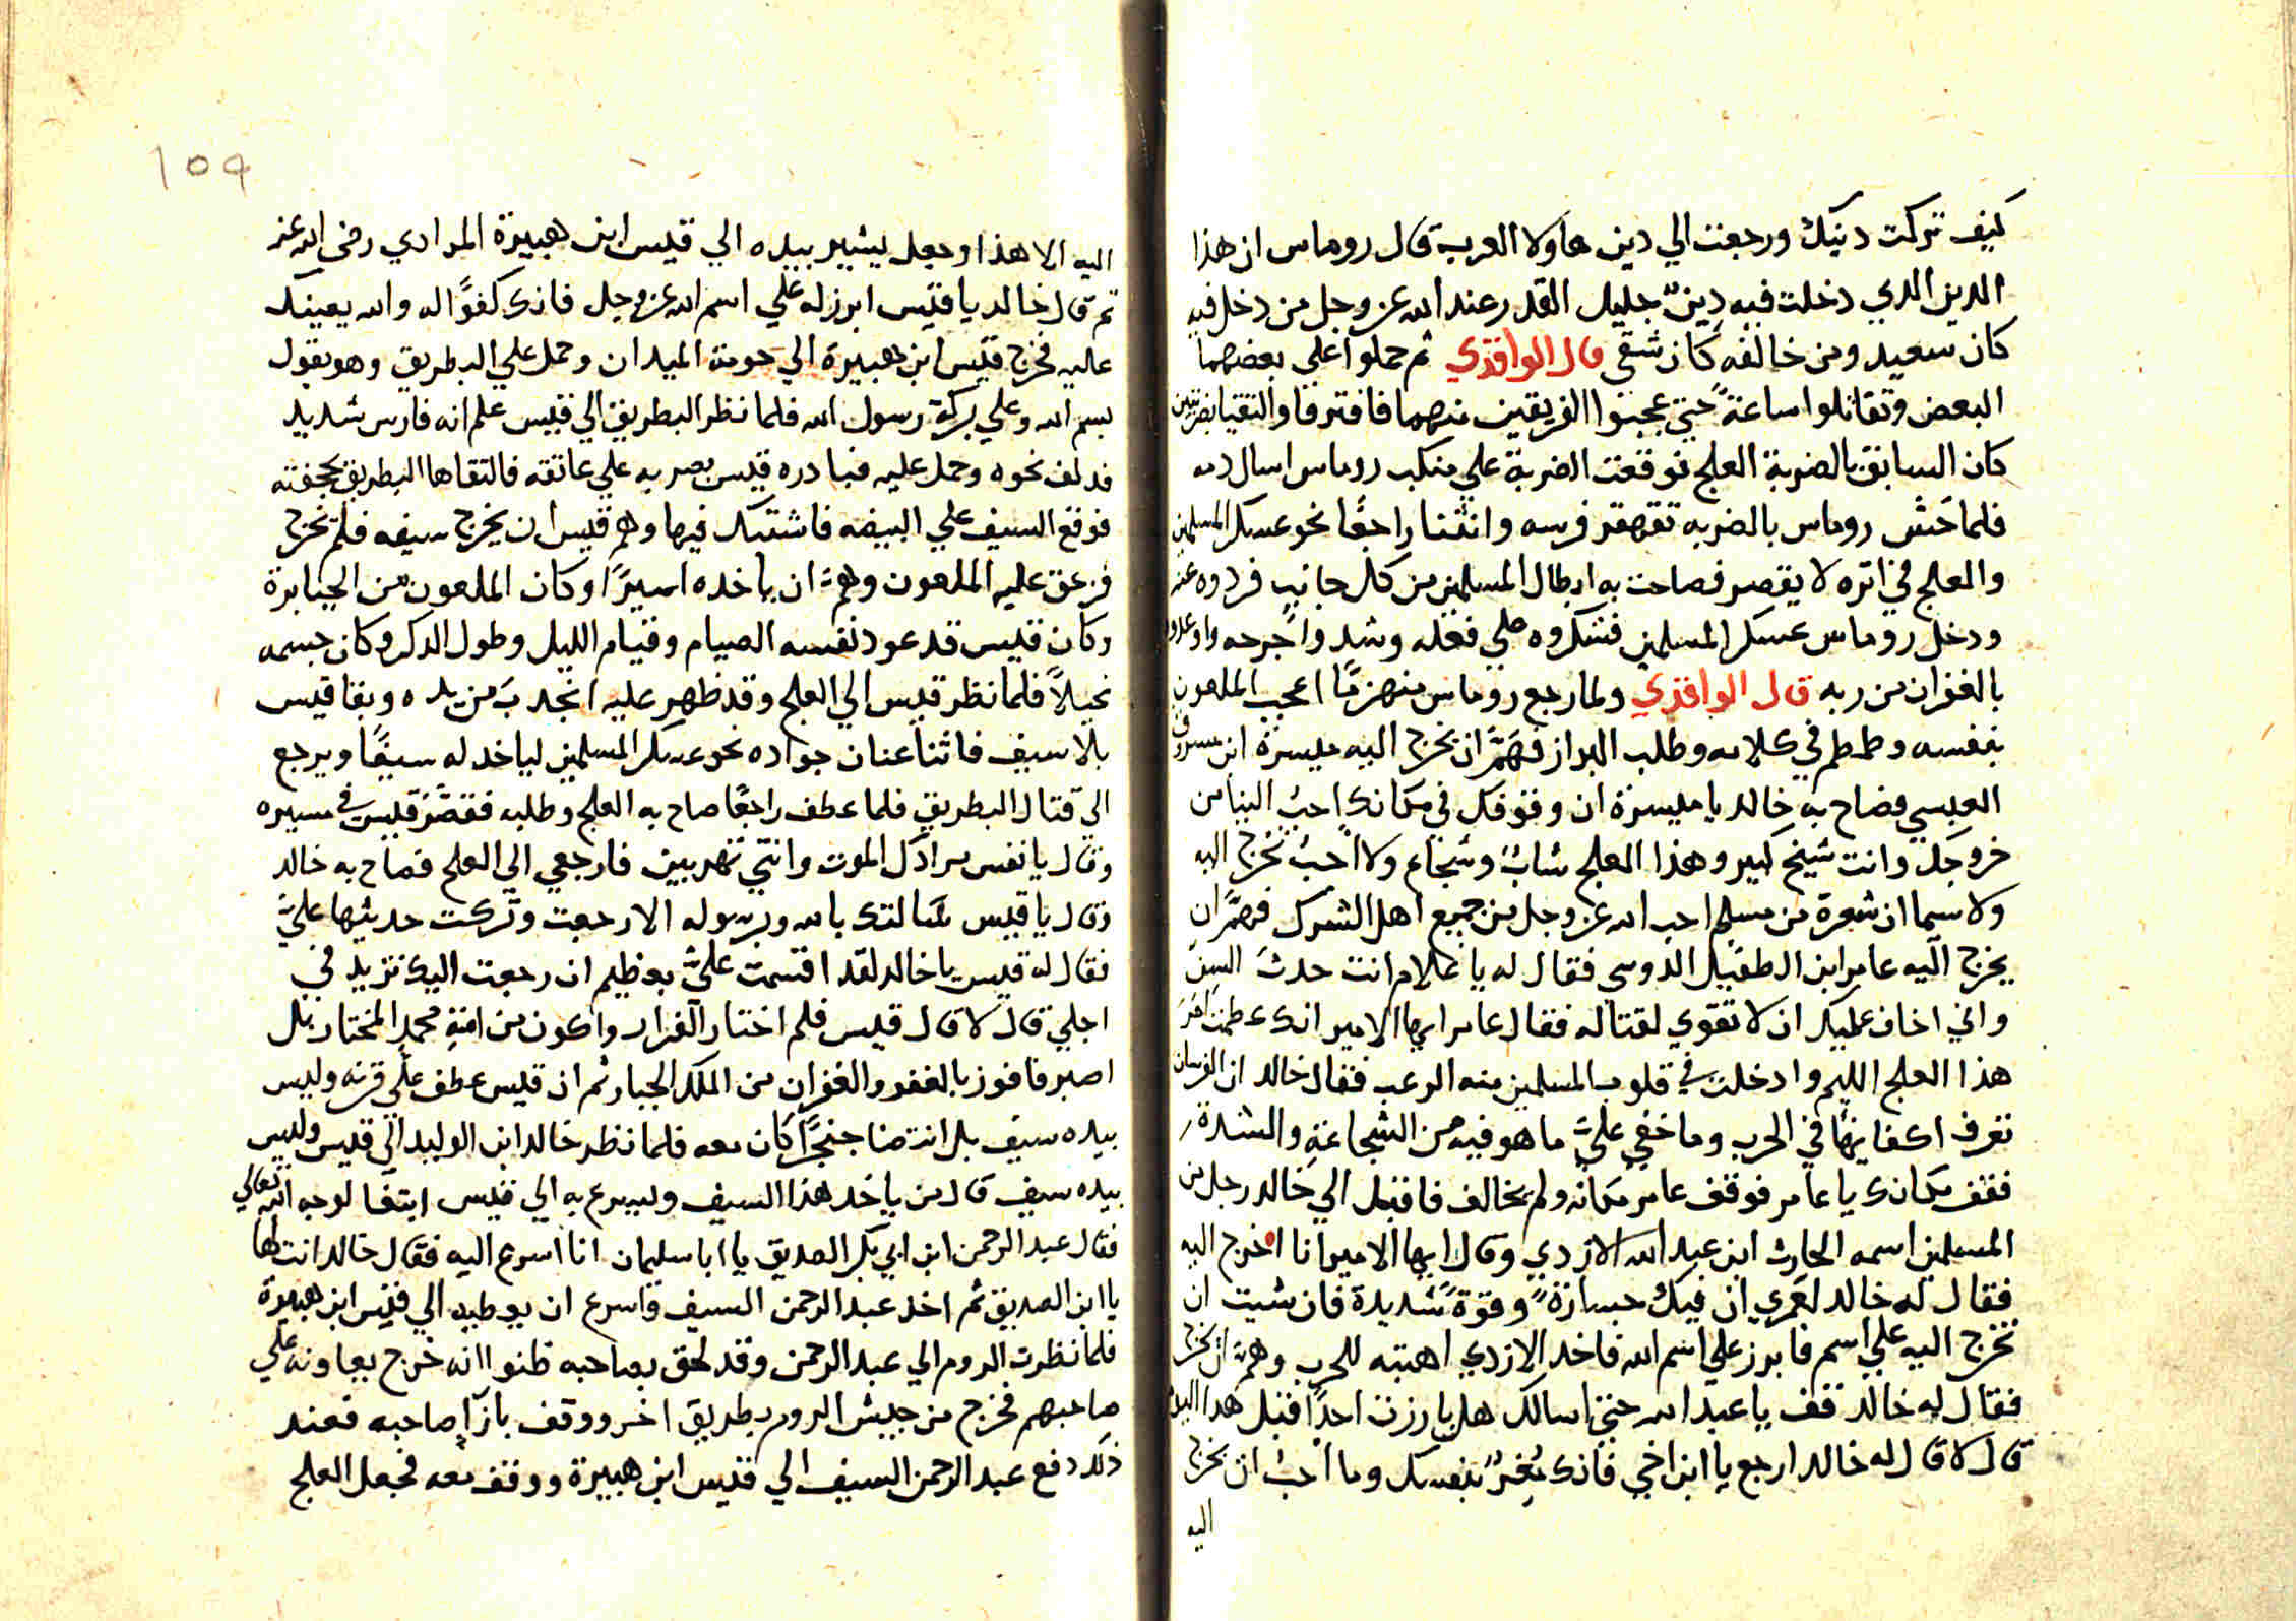 كيف تركت دينك ورجعت الي دين هاولا العرب قال روماس ان هذا
الدين الدي دخلت فيه دينٌ جليل القدر عند الله عز وجل من دخل فيه
كان سعيد ومن خالفه كان شقي قال الواقدي ثم حملوا علي بعضهما
البعض وتقاتلوا ساعةً حتي عجبوا الفريقين منهما فافترقا والتقيا بضربتين
كان السابق بالضربة العلج فوقعت الضربة علي منكب روماس اسال دمه
فلما حَسَّ روماس بالضربه تقهقر فرسه وانثنا راجعًا نحو عسكر المسلمين
والعلج في اتره لا يقصر فصاحت به ابطال المسلمين من كل جانب فردوه عنه
ودخل روماس عسكر المسلمين فشكروه علي فعله وشدوا جرحه واوعدوه
بالغفران من ربه قال الواقدي ولما رجع روماس منهزمًا اعجب الملعون
بنفسه وطمطم في كلامه وطلب البراز فهَمَّ ان يخرج اليه ميسرة ابن مسروق
العبسي فصاح به خالد يا ميسرة ان وقوفك في مكانك احبُ الينا من
خروجك وانت شيخ كبير وهذا العلج شابٌ وشجاع ولا احبُ تخرج اليه
ولا سيما ان شعرة من مسلم احب الله عز وجل من جميع اهل الشرك فهمَّ ان
يخرج اليه عامر ابن الطفيل الدوسي فقال له يا غلام انت حدث السن
واني اخاف عليك ان لا تقوي لقتاله فقال عامر ايها الامير انك عظمت امر
هذا العلج الليم وادخلت في قلوب المسلمين منه الرعب فقال خالد ان الفرسان
تعرف اكفايها في الحرب وما خفي عليَّ ما هو فيه من الشجاعة والشدة
فقف مكانك يا عامر فوقف عامر مكانه ولم يخالف فاقبل الي خالد رجل من
المسلمين اسمه الحارث ابن عبد الله الازدي وقال ايها الامير انا اخرج اليه
فقال له خالد لعَمري ان فيك جسارةً وقوةً شديدة فان شيت ان
تخرج اليه علي اسم فابرز علي اسم الله فاخد الازدي اهبته للحرب وهمَّ ان يخرج
فقال له خالد قف يا عبد الله حتي اسالك هل بارزت احدًا قبل هدا اليوم
قال لا قال له خالد ارجع يا ابن اخي فانك تغرّ بنفسك وما احبُ ان يخرج
اليه
١٥٩
اليه الا هذا وجعل يشير بيده الي قيس ابن هبيرة المرادي رضي الله عنه
ثم قال خالد يا قيس ابرز له علي اسم الله عز وجل فانك كفوًا له والله يعينك
عليه فخرج قيس ابن هبيرة الي حومة الميدان وحمل علي البطريق وهو يقول
بسم الله وعلي بركة رسول الله فلما نظر البطريق الي قيس علم انه فارس شديد
فدلف نحوه وحمل عليه فبادره قيس بضربه علي عاتقه فالتقاها البطريق بحجفته
فوقع السيف علي البيضه فاشتبك فيها وهمَّ قيس ان يخرج سيفه فلم يخرج
فزعق عليه الملعون وهمَّ ان ياخده اسيرًا وكان الملعون من الجبابرة
وكان قيس قد عود نفسه الصيام وقيام الليل وطول الدكر وكان جسمه
نحيلاً فلما نظر قيس الي العلج وقد ظهر عليه انجدب من يده وبقا قيس
بلا سيف فاثنا عنان جواده نحو عسكر المسلمين لياخد له سيفًا ويرجع
الي قتال البطريق فلما عطف راجعًا صاح به العلج وطلبه فقصَّر قيس في مسيره
وقال يا نفس مرادك الموت وانتي تهربين فارجعي الي العلج فصاح به خالد
وقال يا قيس سالتك بالله وبرسوله الا رجعت وتركت حديثها عليَّ
فقال له قيس يا خالد لقد اقسمت عليَّ بعظيم ان رجعت اليك تزيد في
اجلي قال لا قال قيس فلم اختار الفرار واكون من امة محمد المختار بل
اصبر فافوز بالغفر والغفران من الملك الجبار ثم ان قيس عطف علي قرنه وليس
بيده سيف بل انتضا خنجرًا كان معه فلما نظر خالد ابن الوليد الي قيس وليس
بيده سيف قال من ياخد هذا السيف ويسرع به الي قيس ابتغا لوجه الله تعالي
فقال عبد الرحمن ابن ابي بكر الصديق يا ابا سليمان انا اسرع اليه فقال خالد انت لها
يا ابن الصديق ثم اخد عبد الرحمن السيف واسرع ان يوطيه الي قيس ابن هبيرة
فلما نظرت الروم الي عبد الرحمن وقد لحق بصاحبه ظنوا انه خرج يعاونه علي
صاحبهم فخرج من جيش الروم بطريق اخر ووقف بازآ صاحبه فعند
ذلك دفع عبد الرحمن السيف الي قيس ابن هبيرة ووقف معه فجعل العلج